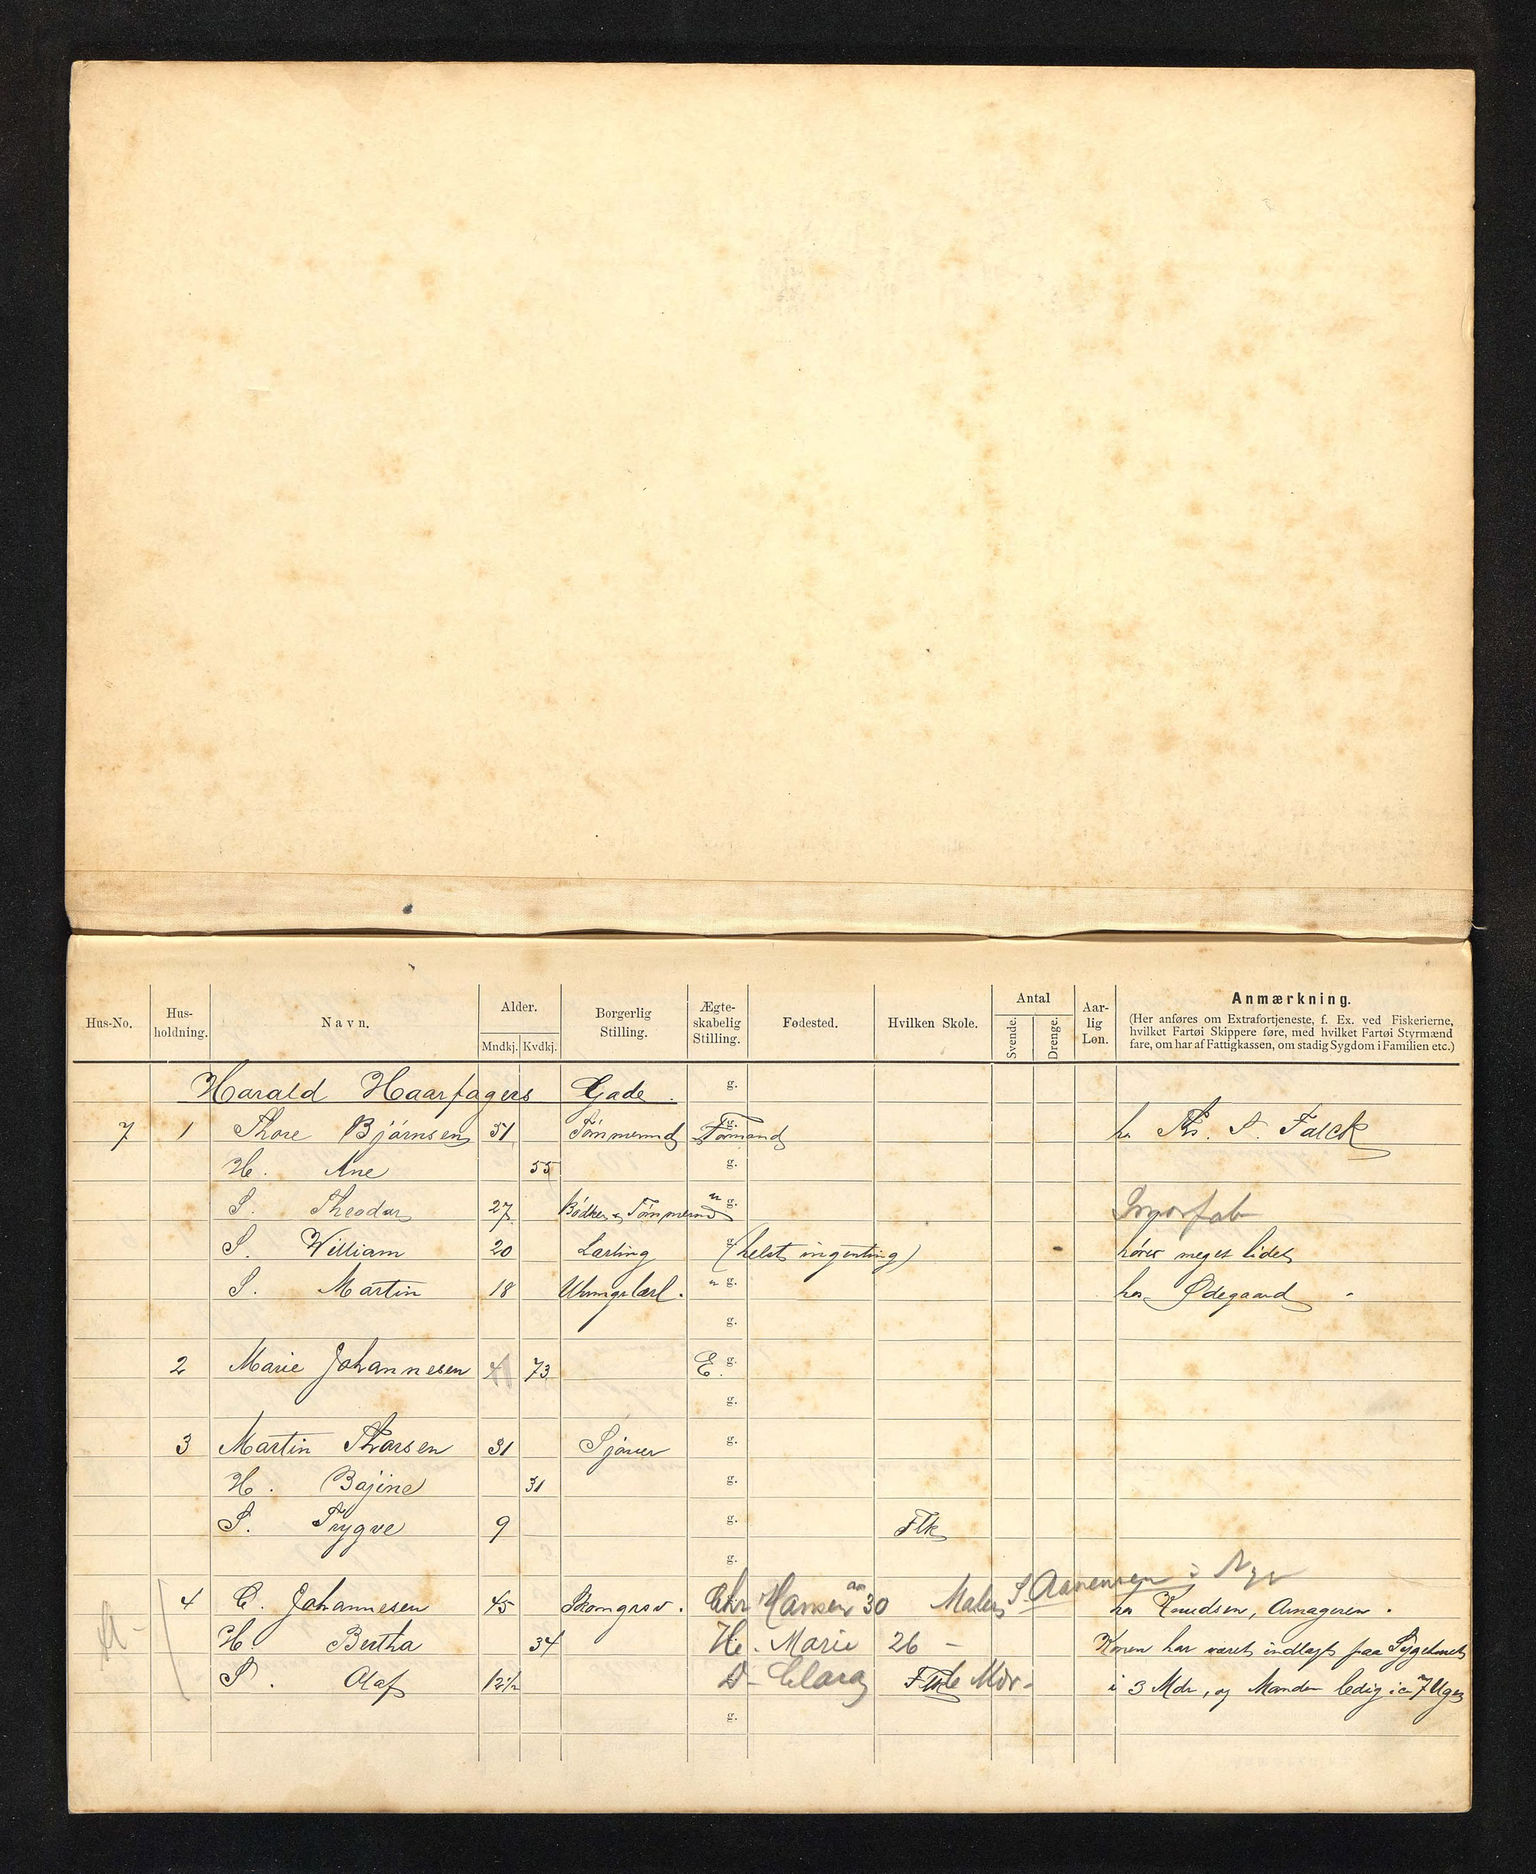 Hus-No. Hus-holdning. Navn. Alder. Mndkj. Kvdkj. Borgerlig Stilling. Ægte-skabelig Stilling. Fødested. Hvilken Skole. Antal Svende. Drenge. Aar-lig Løn. Anmærkning.
(Her anføres om Extrafortjeneste, f. Ex. ved Fiskerierne,
hvilket Fartøi Skippere føre, med hvilket Fartøi Styrmænd
fare, om har af Fattigkassen, om stadig Sygdom i Familien etc.)
Harald Haarfagers Gade. g.
7 1 Thore Bjørnsen 51 Tømmermd g. Formand hos Th. S. Falck
H. Ane 55 g.
S. Theodor 27 Bødker & Tømmermd g.
S. William 20 Lærling g. (helst ingenting) hører meget lidet
S. Martin 18 g. hos Ødegaard
g.
2 Marie Johannesen 73 E. g.
g.
3 Martin Thorsen 31 Sjøner g.
H. Bajine 31 g.
S. Trygve 9 g. Flk
g.
S. Aanensen
4 C. Johannesen 45 Chr Hansen 30 Maler hos Knudsen, Amageren.
H. Bertha 34 He. Marie 26 - Konen har været indlagt paa Sygehuset
S. Olaf 12½ D - Clara Flk Mdr. i 3 Mdr, og Manden ledig i ca 7 Uger
g.